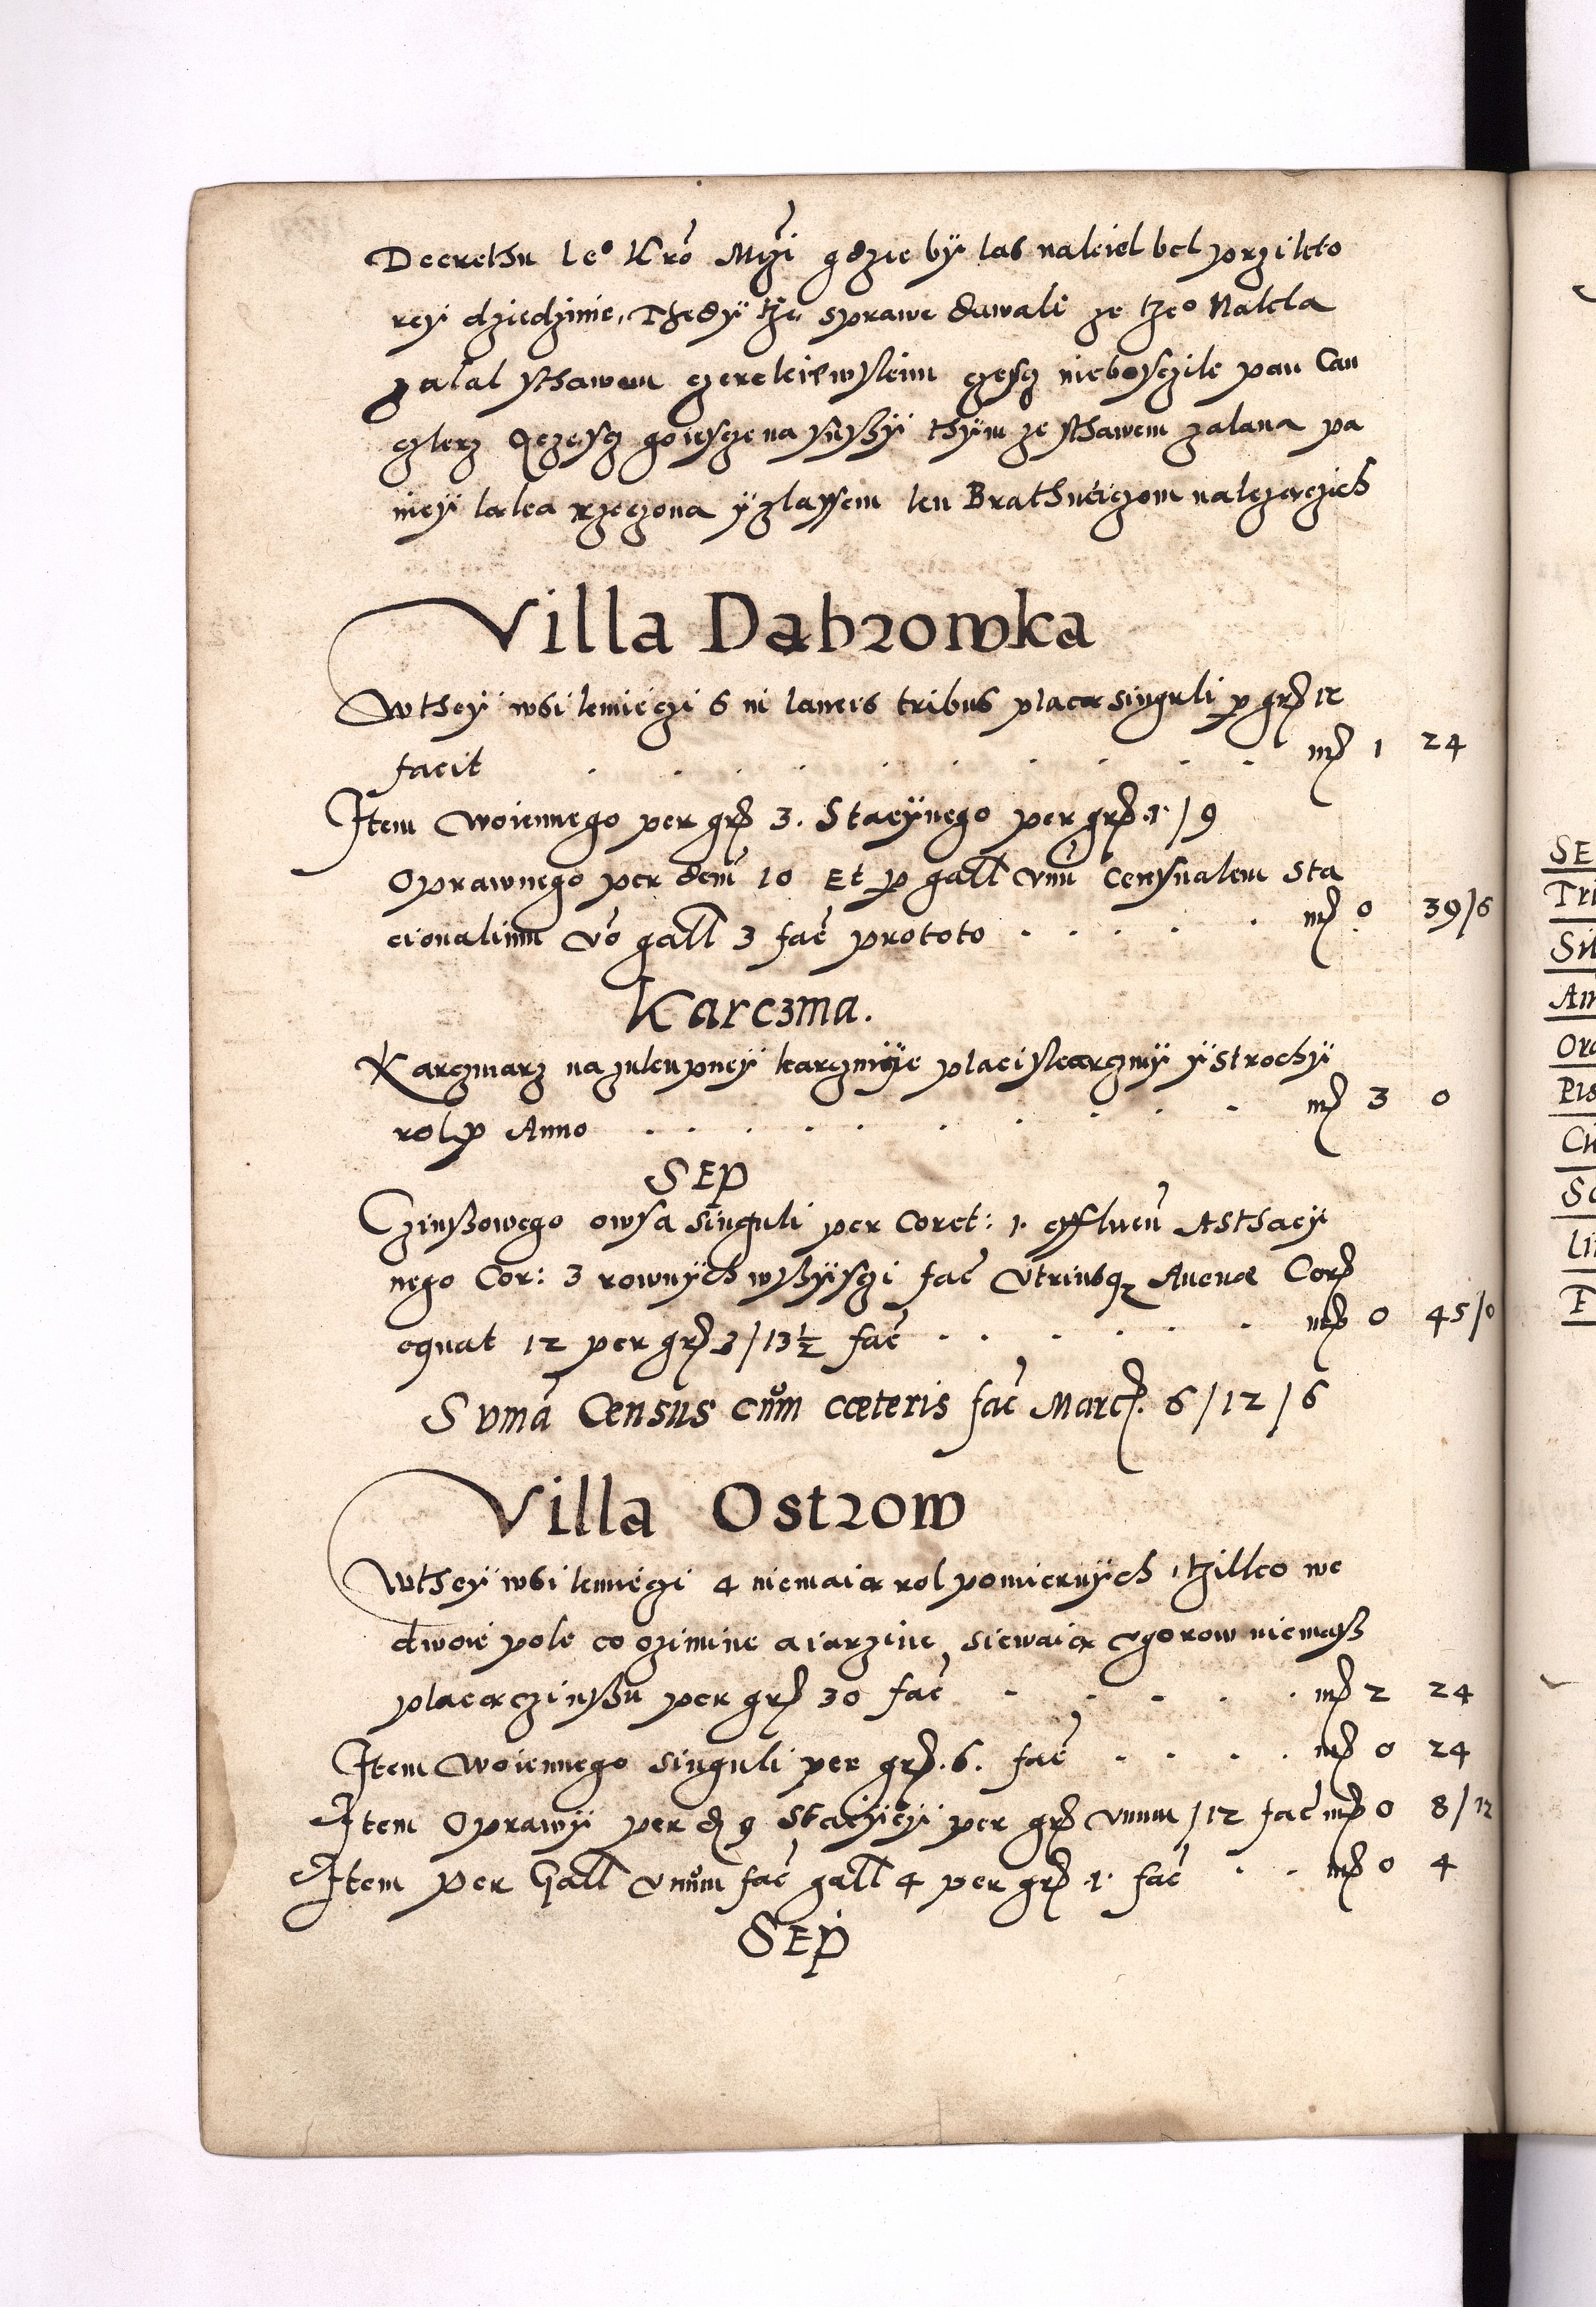 Decrethu Ie° Kro Mczi gdzie by las nalezel bel przi kto
rey dziedzinie, Thedy tze sprawe dawali ze tze° Nakla
zalal sthawem czerekiewskim czescz niebosczik pan Can
czlerz A czescz go iescze nassyßy thym ze sthawem zalana pa
niey laka rzeczona y zlassem ku Brathucziczom nalezaczich
Villa Dąbrowka
W they wsi kmieczi 6 in laneis tribus placą singuli p grβ 12
facit . . . . . . . . . . mβ 1 24
Item Woiennego per grβ 3. Stacynego per grβ 1/9
Oprawnego per dem 10 Et p gall vnu censualem Sta
cionalium vo gall 3 fac prototo . . . . . mβ 0 39/6
Karczma.
Karczmarz na zukupney karczmye placi skarczmy y strochy
rol p Anno . . . . . . . . . mβ 3 0
SEP
Czinßowego owsa singuli per Coret: 1. effluen A Sthacy
nego Cor: 3 rownych wßyisczi fac vtriusq Auenæ Corβ
equat 12 per grβ 3/13½ fac . . . . . . mβ 0 45/0
Suma Census cum cæteris fac Marcβ. 6/12/6
Villa Ostrow
W they wsi kmieczi 4 niemaią rol pomiernych, tzilko we
dwoie pole co ozimine a iarzine siewaią vgorow niemaß
placą czinßu per grβ 30 fac . . . . . mβ 2 24
Item Woiennego singuli per grβ. 6. fac . . . . mβ 0 24
Item Oprawy per d 9 Stacyiey per grβ vnum/12 fac mβ 0 8/12
Item per Gall vnum fac gall 4 per grβ 1. fac . . mβ 0 4
SEP
SE
Tri
Sil
Am
Ord
Pis
Cu
Sc
Li
F